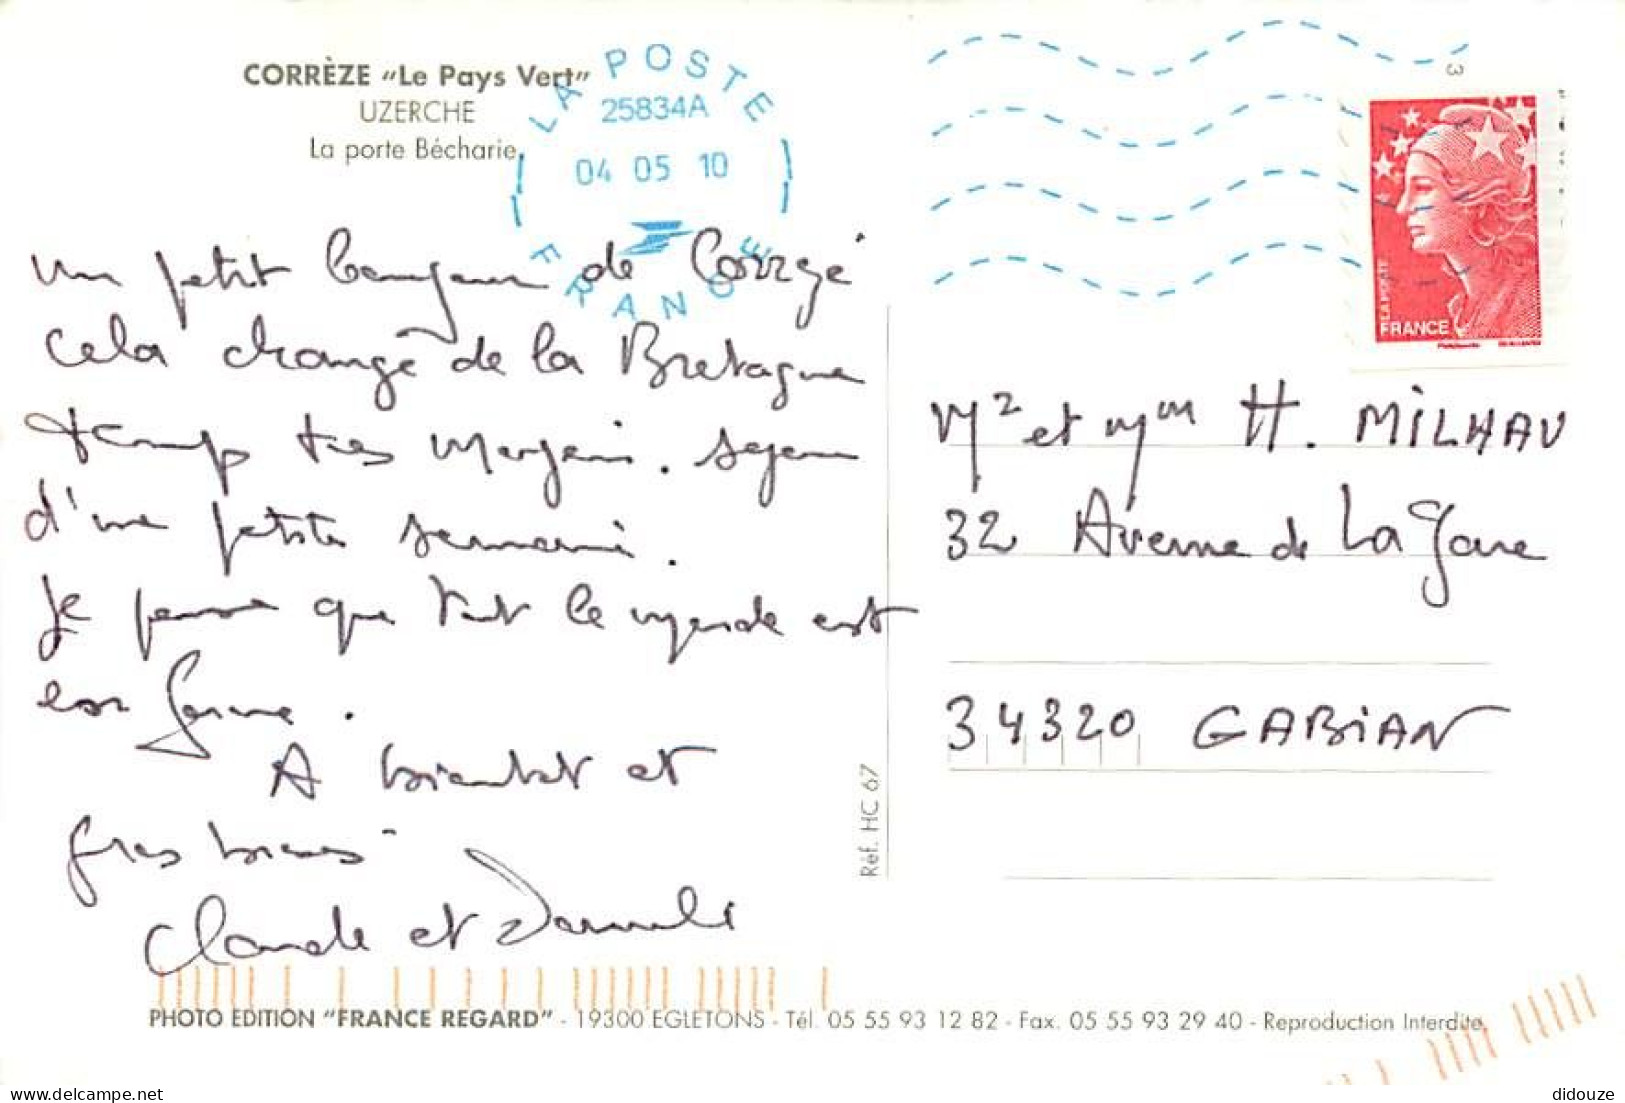 CORRÈZE "Le Pays Vert"
UZERCHE
La porte Bécharie
LA POSTE
25834A
04 05 10
FRANCE
3
LA POSTE
FRANCE
Un petit bonjour de Corrèze
cela change de la Bretagne
temps très moyen. séjour
d'une petite semaine.
Je pense que tout le monde est
en forme.
A bientôt et
gros bises
Claude et Danielle
Mr et Mm H. MILHAU
32 Avenue de La Gare
34320 GABIAN
Réf. HC 67
PHOTO EDITION "FRANCE REGARD" - 19300 EGLETONS - Tél. 05 55 93 12 82 - Fax. 05 55 93 29 40 - Reproduction Interdite
didouze